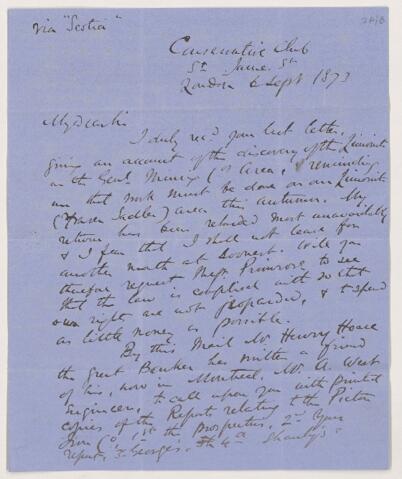 via "Scotia"
Conservative Club
St. James St
London 6 Sept 1873
My dear Sir
I duly recd your last letter,
giving an account of the discovery of the Limonite
on the Genl Mining Co Area, & reminding
me that work must be done on our Limonite
(Fraser Sadler) area this autumn. My
return has been retarded most unavoidably
& I fear that I shall not leave for
another month at soonest. Will you
therefore request Messrs Primrose to see
that the law is complied with so that
our rights are not jeopardied, & to spend
as little money as possible.
By this Mail Mr Henry Hoare
the great Banker has written a friend
of his, now in Montreal, Mr. A. West
Engineer, to call upon you with printed
copies of the Report relating to the Pictou
Iron Co, 1st the prospectus, 2nd Your
report, 3 Georges, 4th Shanly's